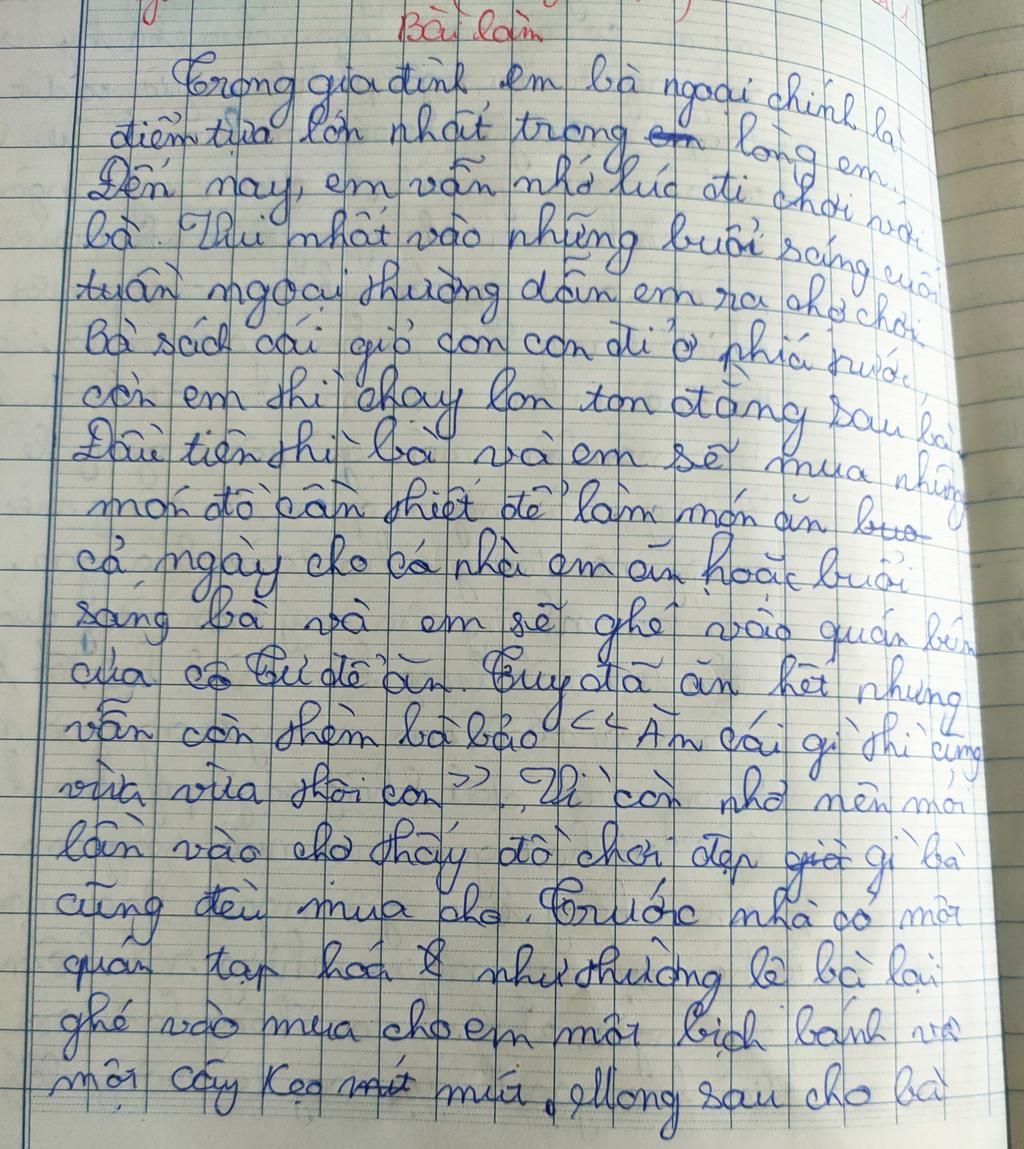 Bài làm
Trong gia đình em bà ngoại chính là
điểm tựa lớn nhất trong em lòng em.
Đến nay, em vẫn nhớ lúc đi chơi với
bà. Thú nhất vào những buổi sáng cuối
tuần ngoại thường dẫn em ra chợ chơi.
Bà sách cái giỏ con con đi ở phiá trước,
còn em thì chạy lon ton đằng sau bà.
Đầu tiên thì bà và em sẽ mua những
món đồ cần thiết để làm món ăn
cả ngày cho cả nhà em ăn hoặc buổi
sáng bà và em sẽ ghé vào quán bún
của cô Tư để ăn. Tuy đã ăn hết nhưng
vẫn còn thèm bà bảo << Ăn cái gì thì cũng
vừa vừa thôi con >>. Vì còn nhỏ nên mỗi
lần vào chợ thấy đồ chơi đẹp gì bà
cũng đều mua cho. Trước nhà có một
quán tạp hoá như thường lệ bà lại
ghé vào mua cho em một bịch bánh và
một cây kẹo mút. Mong sau cho bà